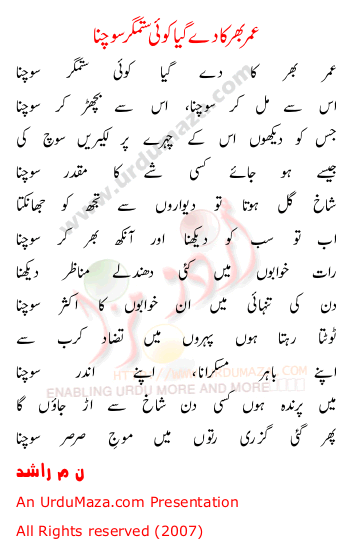 عمر بھر کا دے گیا کوئی ستمگر سوچنا
عمر بھر کا دے گیا کوئی ستمگر سوچنا
اس سے مل کر سوچنا، اس سے بچھڑ کر سوچنا
جس کو دیکھوں اس کے چہرے پر لکیریں سوچ کی
جیسے ہو جائے کسی شے کا مقدر سوچنا
شاخ گل ہوتا تو دیواروں سے تجھ کو جھانکتا
اب تو سب کو دیکھنا اور آنکھ بھر کر سوچنا
رات خوابوں میں کئی دھندلے مناظر دیکھنا
دن کی تنہائی میں ان خوابوں کا اکثر سوچنا
ٹوٹتا رہتا ہوں پہروں میں تضاد کرب سے
اپنے باہر مسکرانا، اپنے اندر سوچنا
میں پرندہ ہوں کسی دن شاخ سے اڑ جاؤں گا
پھر گئی گزری رتوں میں موج صرصر سوچنا
ن م راشد
An UrduMaza.com Presentation
All Rights reserved (2007)
www.urdumaza.com
اردو مزا
HTTP://WWW.URDUMAZA.COM
ENABLING URDU MORE AND MORE